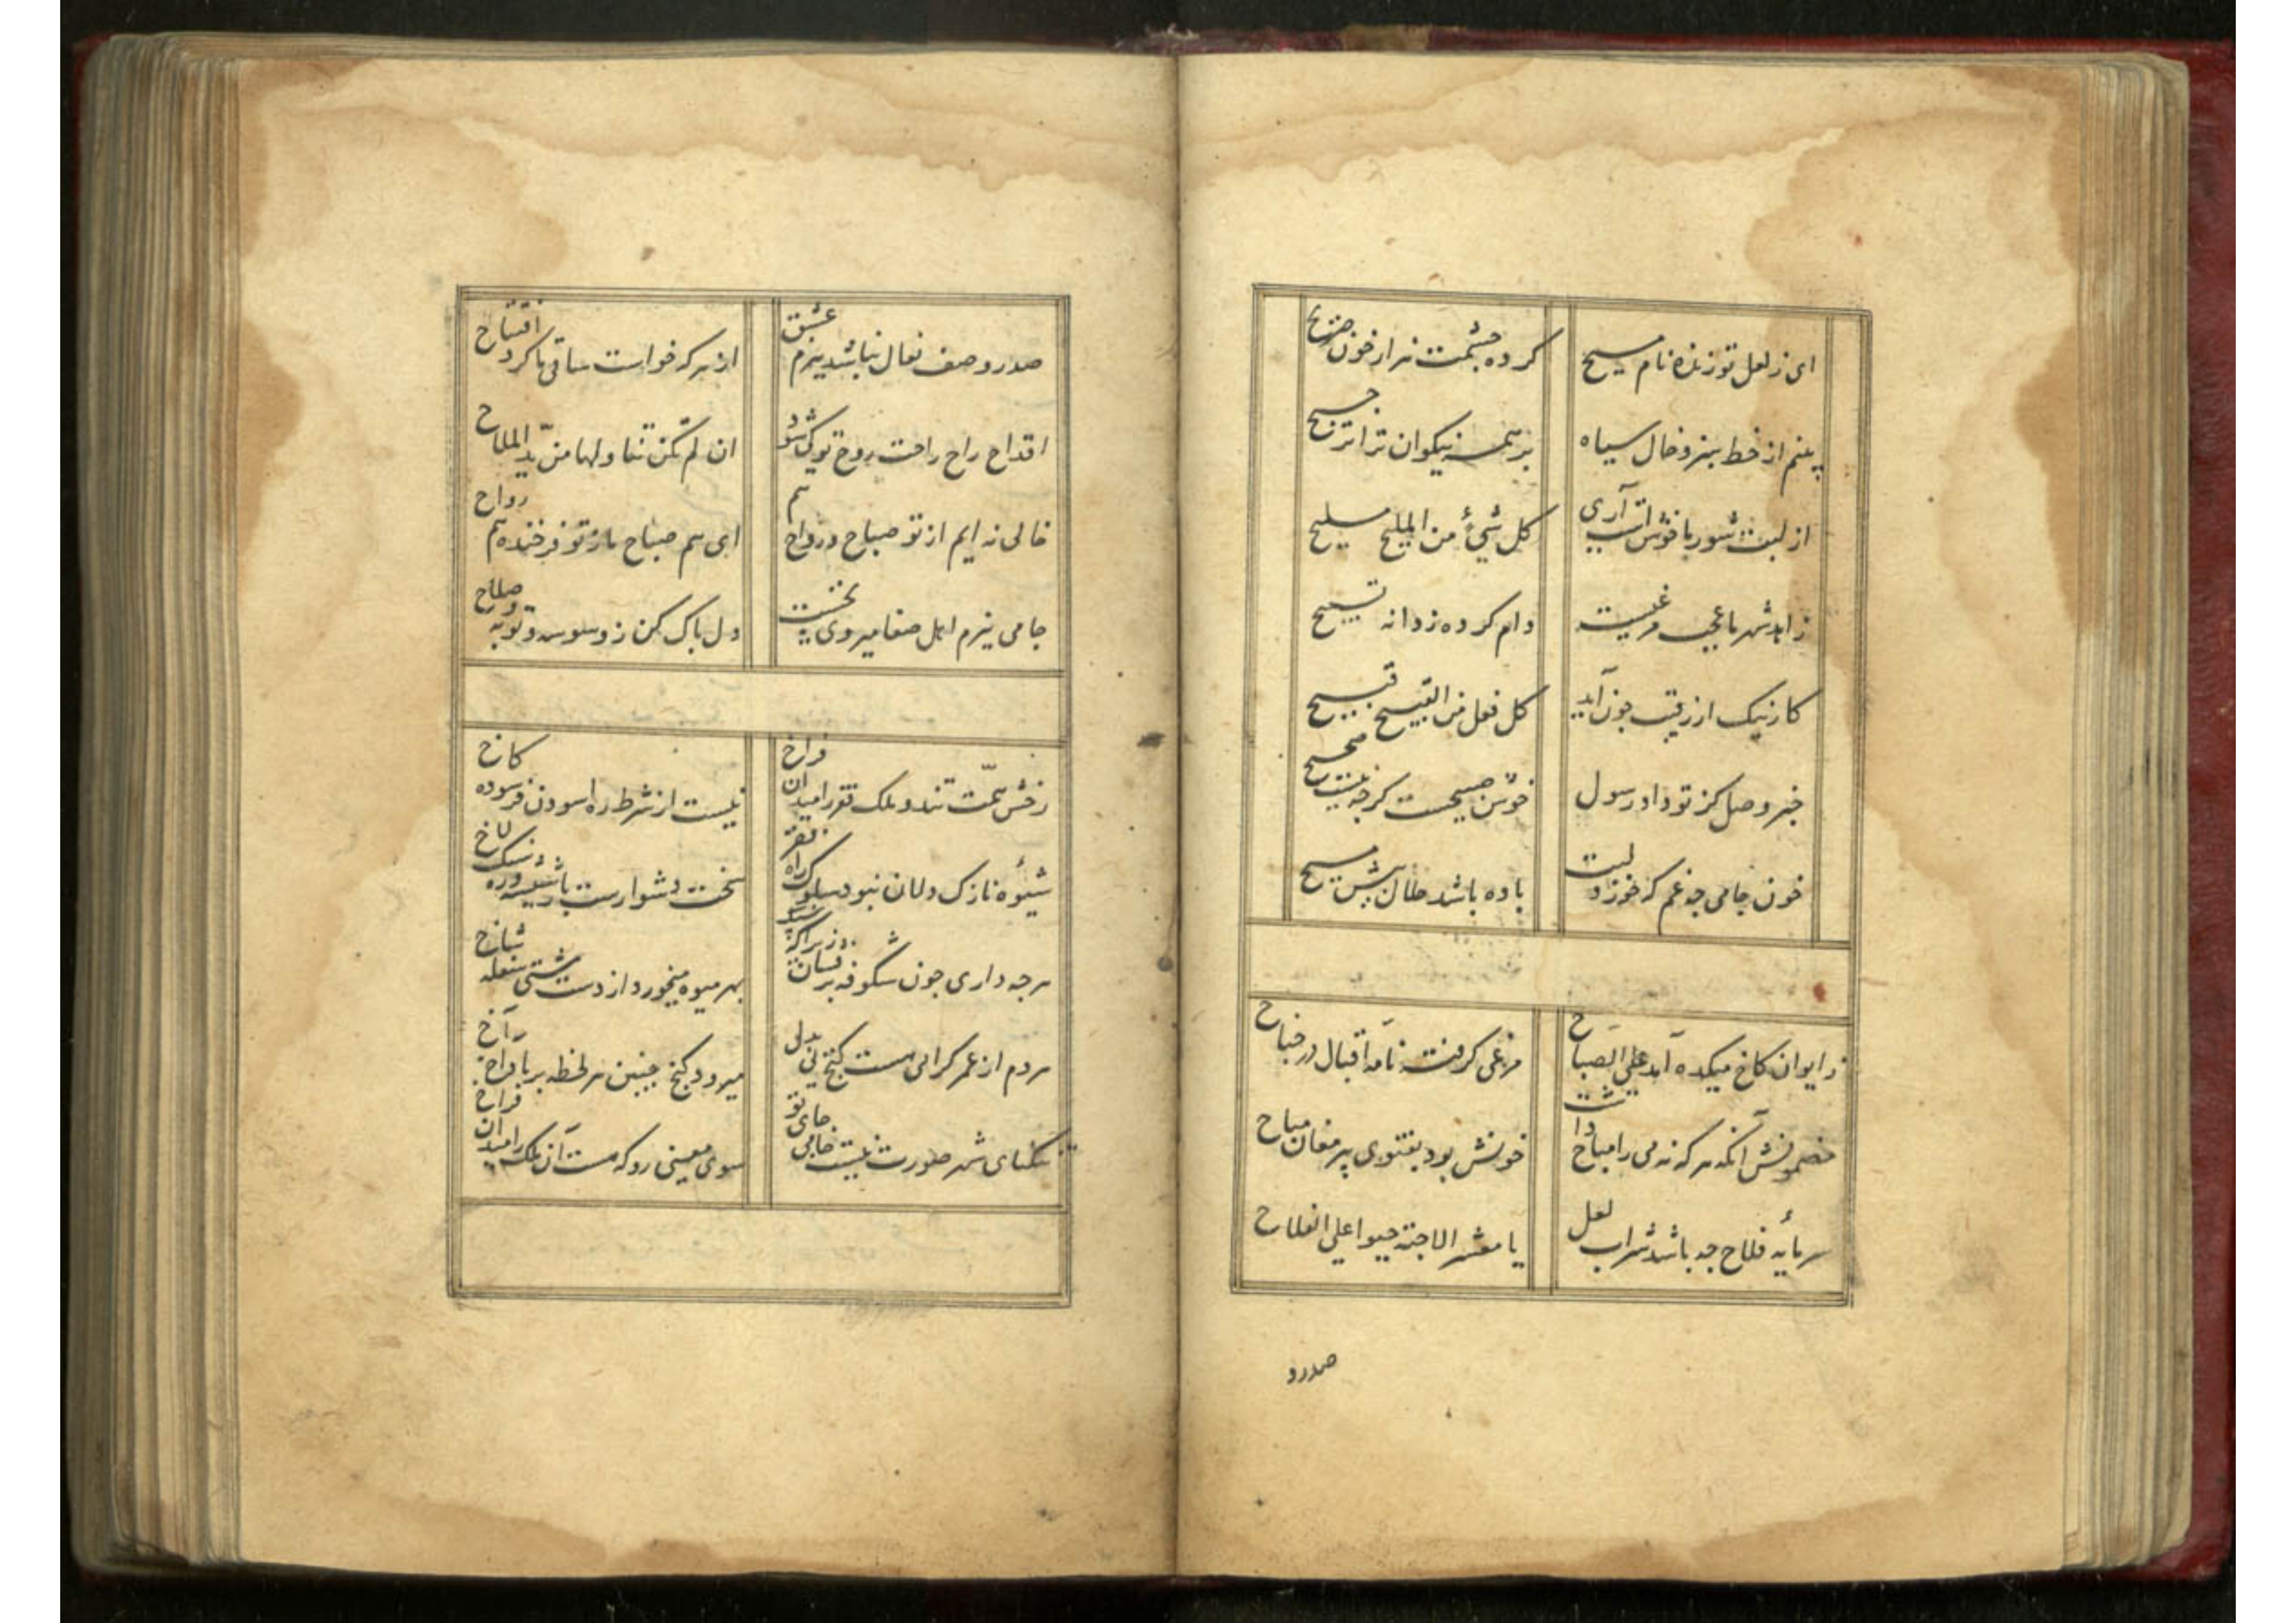 ای ز لعل تو زنده نام مسیح
کرده چشمت هزار خون صریح
بینم از خط سبز و خال سیاه
بر همه نیکوان ترا ترجیح
از لبت شور ما خوش است آری
کل شیءٍ من الملیح ملیح
زاهد شهر ما عجب مرغیست
دام کرده ز دانه تسبیح
کار نیک از رقیب چون آید
کل فعل من القبیح قبیح
خبر وصل کز تو داد رسول
خوش حدیثیست گرچه نیست صحیح
خون جامی چه غم که خورد لبت
باده باشد حلال پیش مسیح
ز ایوان کاخ میکده آمد علی الصباح
مرغی گرفته نامه اقبال در جناح
مضمونش آنکه هر که نه می را مباح داشت
خونش بود بفتوی پیر مغان مباح
سرمایه فلاح چه باشد شراب لعل
یا معشر الاحبة حیوا علی الفلاح
صدر و
صدر و صف نعال نباشد ببزم عشق
از هر که خواست ساقی ما کرد افتتاح
اقداح راح راحت روح تو کی شود
ان لم تکن تناولها من ید الملاح
خالی نه ایم از تو صباح و رواح هم
ای هم صباح ما ز تو فرخنده هم رواح
جامی ببزم اهل صفا میروی نخست
دل پاک کن ز وسوسه توبه و صلاح
رخش همت تند و ملک فقر را میدان فراخ
نیست از شرط ره آسودن فرسوده کاخ
شیوه نازک دلان نبود سلوک راه فقر
سخت دشوارست بار شیشه و ره سنگلاخ
هرچه داری چون شکوفه برفشان زیرا که سنگ
بهر میوه میخورد از دست هر سفله شاخ
هر دم از عمر گرامی هست گنج بی بدل
میرود گنج چنین هر لحظه بر باد آخ آخ
تنگنای شهر صورت نیست جامی جای تو
سوی معنی رو که هست آن ملک را میدان فراخ